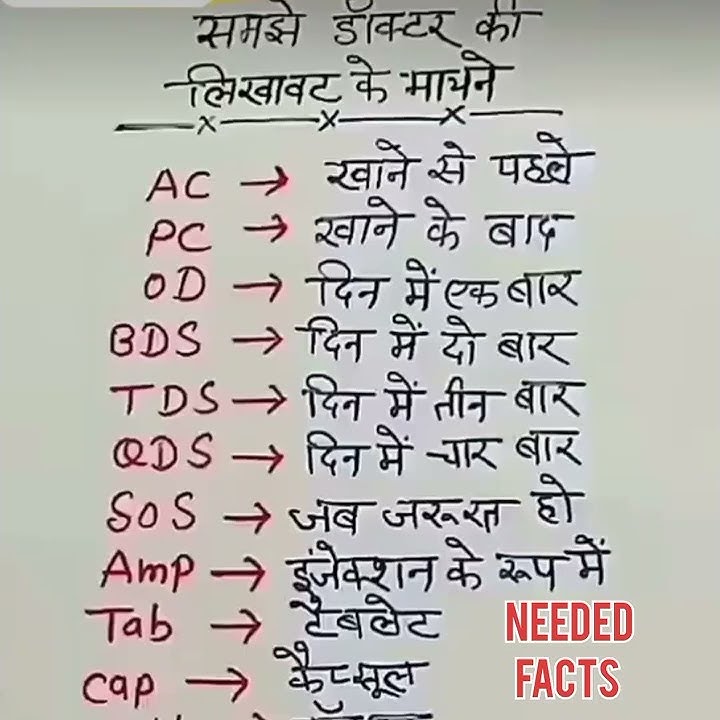 समझे डॉक्टर की
लिखावट के मायने
AC → खाने से पहले
PC → खाने के बाद
OD → दिन में एक बार
BDS → दिन में दो बार
TDS → दिन में तीन बार
QDS → दिन में चार बार
SOS → जब जरूरत हो
Amp → इंजेक्शन के रूप में
Tab → टैबलेट
Cap → कैप्सूल
NEEDED
FACTS